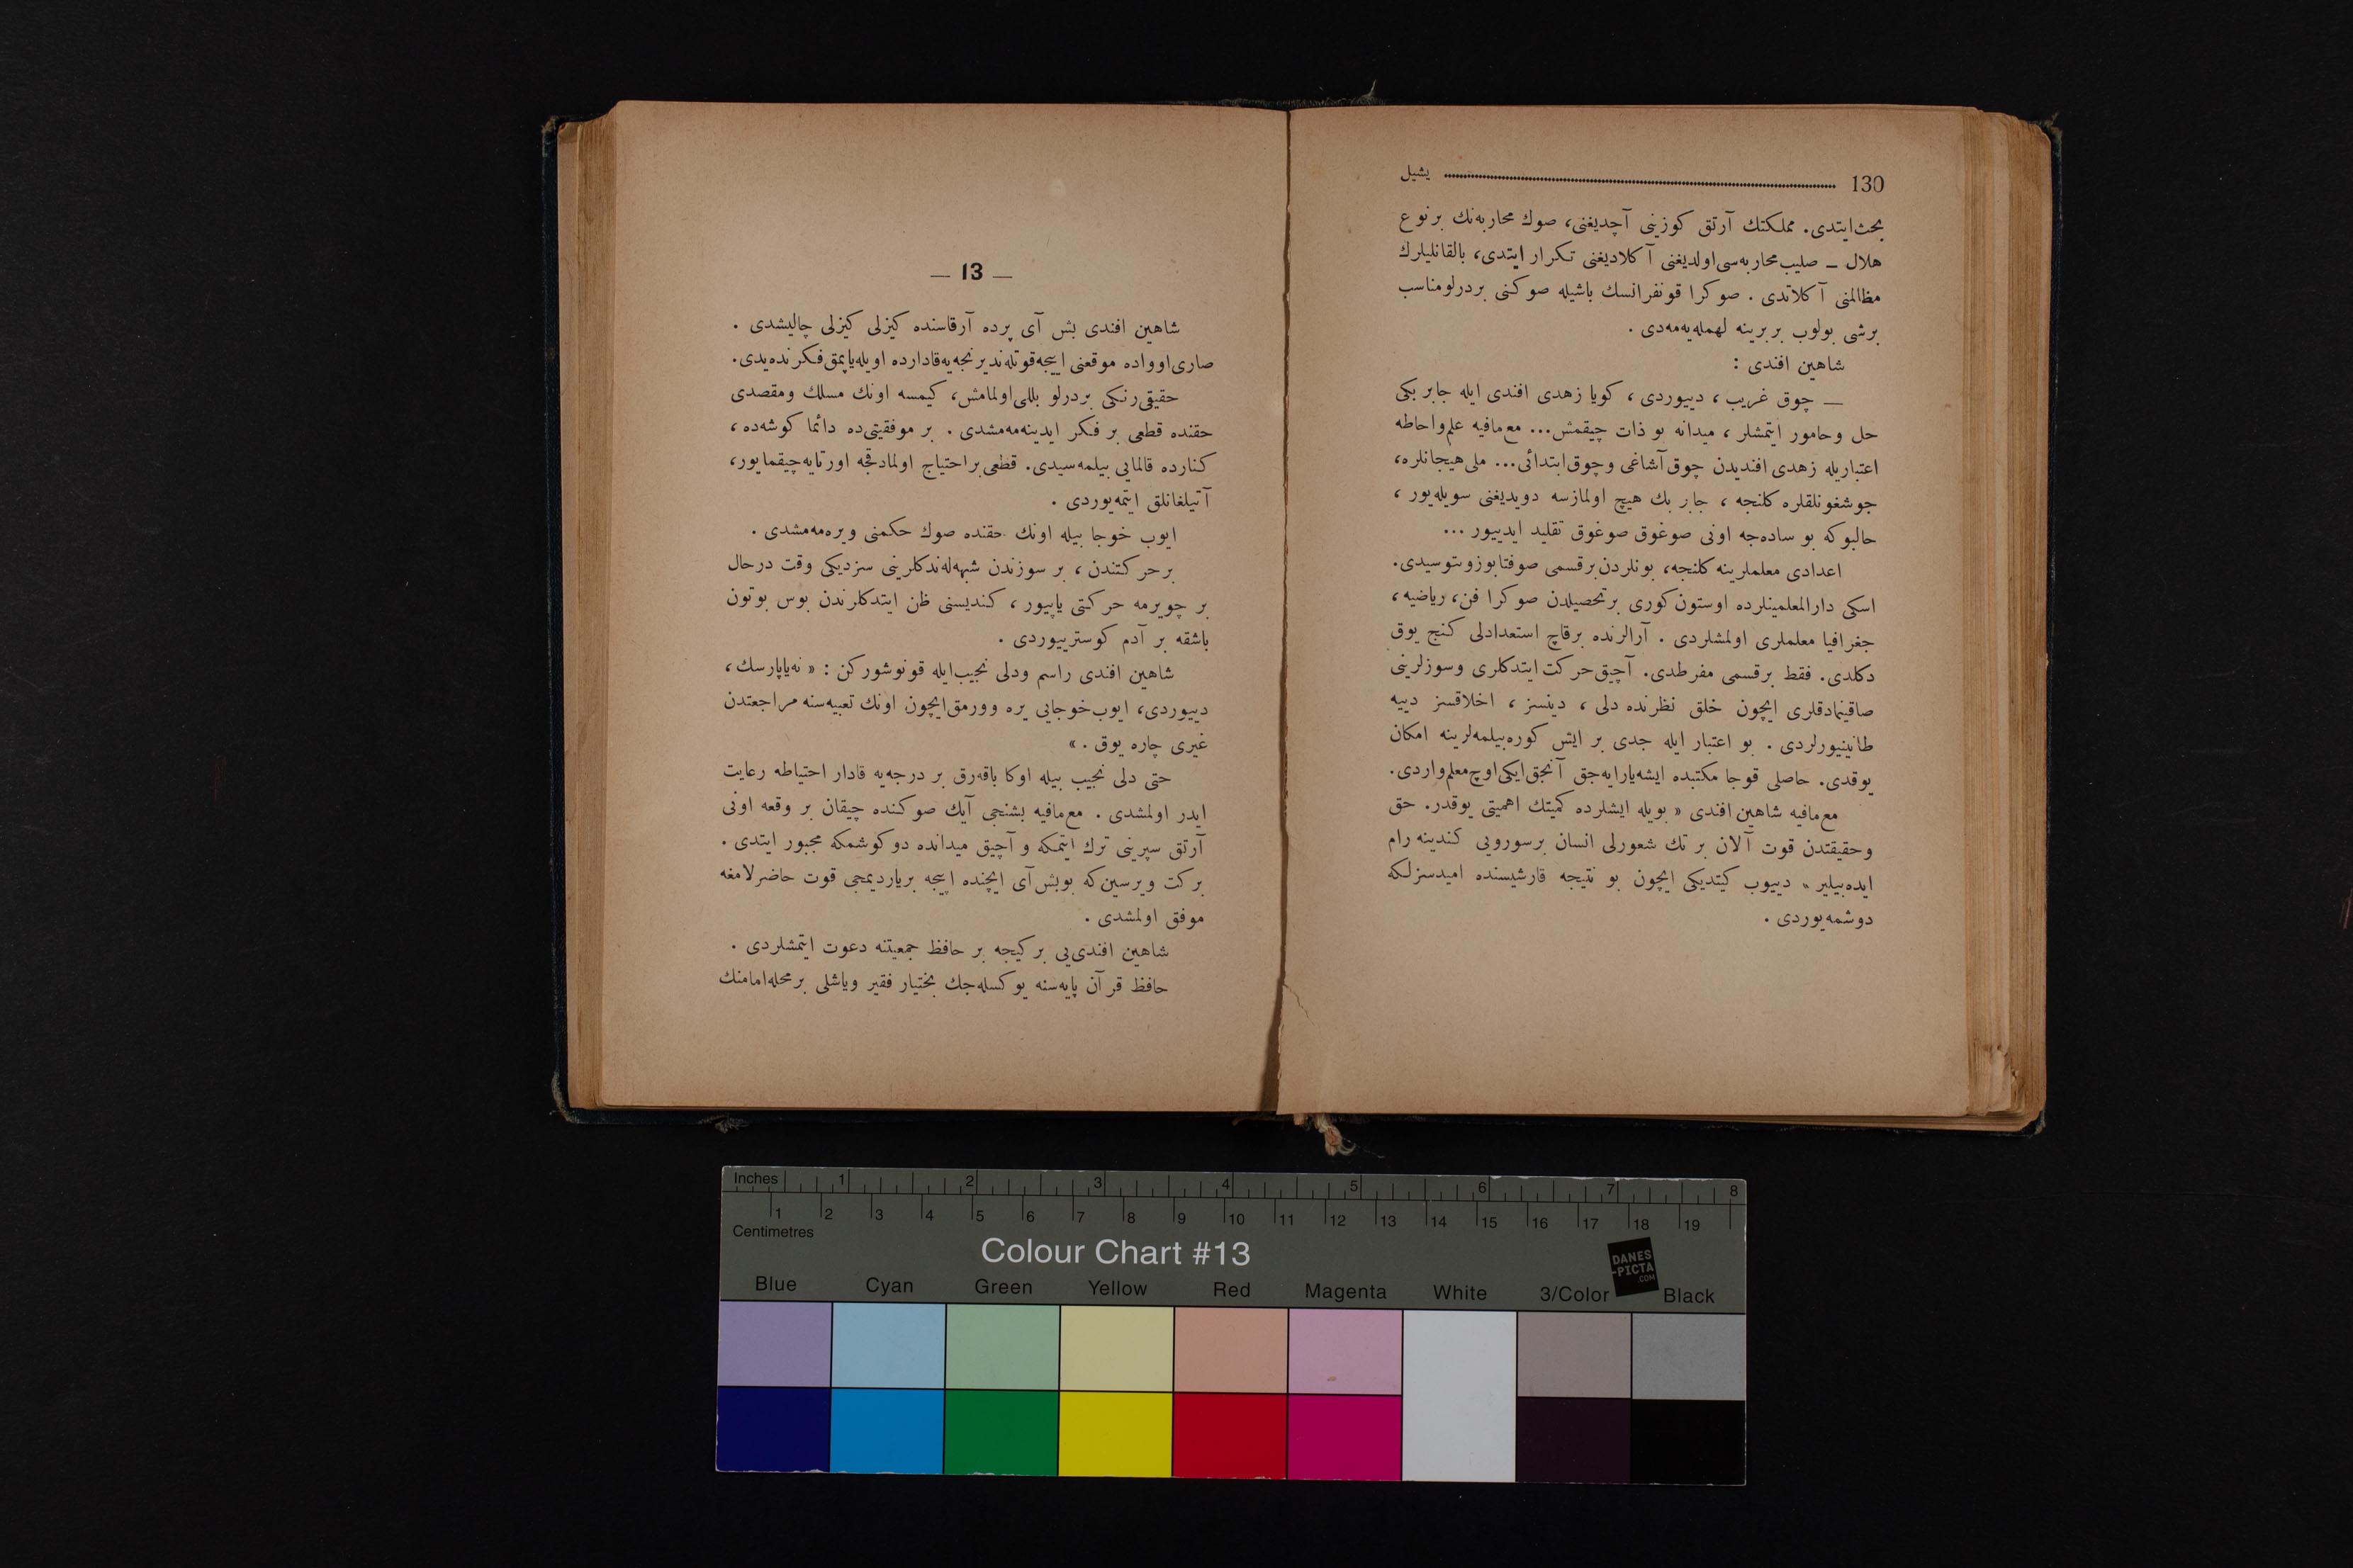 130 یشیل
بحث‌ایتدی. مملكتك آرتق كوزینی آچدیغنی، صوك محاربه‌نك برنوع
هلال ـ صلیب‌محاربه‌سی‌اولدیغنی آكلادیغنی تكرار ایتدی، بالقانلیلرك
مظالمنی آكلاتدی . صوكرا قونفرانسك باشیله صوكنی بردرلومناسب
برشی بولوب بربرینه لهمله‌یه‌مه‌دی .
شاهین افندی :
— چوق غریب ، دییوردی ، كویا زهدی افندی ایله جابر بكی
حل وحامور ایتمشلر ، میدانه بو ذات چیقمش... مع‌مافیه علم‌واحاطه
اعتباریله زهدی افندیدن چوق‌آشاغی وچوق‌ابتدائی... ملی‌هیجانلره،
جوشغونلقلره كلنجه ، جابر بك هیچ اولمازسه دویدیغنی سویله‌یور ،
حالبوكه بو ساده‌جه اونی صوغوق صوغوق تقلید ایدییور ...
اعدادی معلملرینه‌كلنجه، بونلردن‌برقسمی صوفتابوزونتوسیدی.
اسكی دارالمعلمینلرده اوستون‌كوری برتحصیلدن صوكرا فن، ریاضیه،
جغرافیا معلملری اولمشلردی . آرالرنده برقاچ استعدادلی كنج یوق
دكلدی. فقط برقسمی مفرطدی. آچیق‌حركت‌ایتدكلری وسوزلرینی
صاقینمادقلری ایچون خلق نظرنده دلی ، دینسز ، اخلاقسز دییه
طانینیورلردی . بو اعتبار ایله جدی بر ایش كوره‌بیلمه‌لرینه امكان
یوقدی. حاصلی قوجا مكتبده ایشه‌یارایه‌جق آنجق‌ایكی‌اوچ‌معلم‌واردی.
مع‌مافیه شاهین‌افندی « بویله ایشلرده كمیتك اهمیتی یوقدر. حق
وحقیقتدن قوت آلان بر تك شعورلی انسان برسورویی كندینه رام
ایده‌بیلیر » دییوب كیتدیكی ایچون بو نتیجه قارشیسنده امیدسزلكه
دوشمه‌یوردی .
— 13 —
شاهین افندی بش آی پرده آرقاسنده كیزلی كیزلی چالیشدی .
صاری‌اوواده موقعنی اییجه‌قوتله‌ندیرنجه‌یه‌قادارده اویله‌یاپمق‌فكرنده‌یدی.
حقیقی‌رنكی بردرلو بللی‌اولمامش، كیمسه اونك مسلك ومقصدی
حقنده قطعی بر فكر ایدینه‌مه‌مشدی . بر موفقیتی‌ده دائما كوشه‌ده،
كنارده قالمایی بیلمه‌سیدی. قطعی‌براحتیاج اولمادقجه اورتایه‌چیقمایور،
آتیلغانلق ایتمه‌یوردی .
ایوب خوجا بیله اونك حقنده صوك حكمنی ویره‌مه‌مشدی .
برحركتندن ، بر سوزندن شبهه‌له‌ندكلرینی سزدیكی وقت درحال
بر چویرمه حركتی یاپیور ، كندیسنی ظن ایتدكلرندن بوس بوتون
باشقه بر آدم كوسترییوردی .
شاهین افندی راسم ودلی نجیب‌ایله قونوشوركن : « نه‌یاپارسك،
دییوردی، ایوب‌خوجایی یره وورمق‌ایچون اونك تعبیه‌سنه مراجعتدن
غیری چاره یوق . »
حتی دلی نجیب بیله اوكا باقه‌رق بر درجه‌یه قادار احتیاطه رعایت
ایدر اولمشدی . مع‌مافیه بشنجی آیك صوكنده چیقان بر وقعه اونی
آرتق سپرینی ترك ایتمكه و آچیق میدانده دوكوشمكه مجبور ایتدی .
بركت ویرسین‌كه بوبش‌آی ایچنده اییجه بریاردیمجی قوت حاضرلامغه
موفق اولمشدی .
شاهین افندی‌یی بر كیجه بر حافظ جمعیتنه دعوت ایتمشلردی .
حافظ قرآن پایه‌سنه یوكسله‌جك بختیار فقیر ویاشلی برمحله‌امامنك
Inches 1 2 3 4 5 6 7 8
1 2 3 4 5 6 7 8 9 10 11 12 13 14 15 16 17 18 19
Centimetres
Colour Chart #13
DANES
-PICTA
.COM
Blue Cyan Green Yellow Red Magenta White 3/Color Black